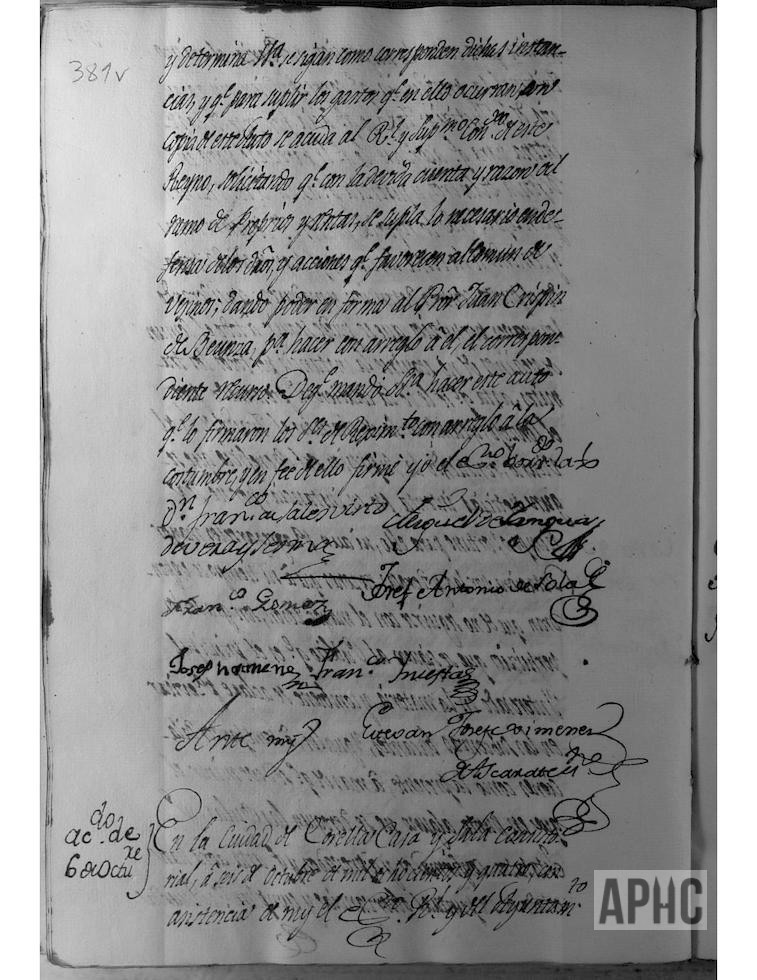 381v
y determina Sª. se sigan como corresponden dichas instan-
cias, y qᵉ. para suplir los gastos qᵉ. en ello ocurran, con
copia de este Auto se acuda al Rˡ. y Supᵐᵒ. Conˢᵒ. de este
Reyno, solicitando qᵉ. con la devida cuenta y razon del
ramo de Proprios y Rentas, se supla lo necesario en de-
fensa de los dros, y acciones qᵉ. favorecen al Comun de
Vezinos; dando poder en forma al Proʳ. Juan Crispin
de Beunza, pª. hacer con arreglo à el, el correspon-
diente recurso. De qᵉ. mandò Sª. hacer este auto
qᵉ. lo firmaron los Sʳᵉˢ. de Regimᵗᵒ. con arreglo à la
costumbre, y en fee de ello firmè yo el Esⁿᵒ.
Dⁿ. Franᶜᵒ. de Sales Virto
de Vera y
Miguel de Sangua
Josef Antonio de Sola
Franᶜᵒ. Gomez
Joseph Ximenez
Franᶜᵒ. Yniestas
Ante my
Estevan Josef Ximenez
de Ascarate
acᵈᵒ. de
6 de Octuʳᵉ
En la Ciudad de Corella Casa y Sala consisto-
rial, à seis de Octubre de mil ochocientos y quatro, con
asistencia de my el Esⁿᵒ. Rˡ. y del Ayuntamᵗᵒ
APHC